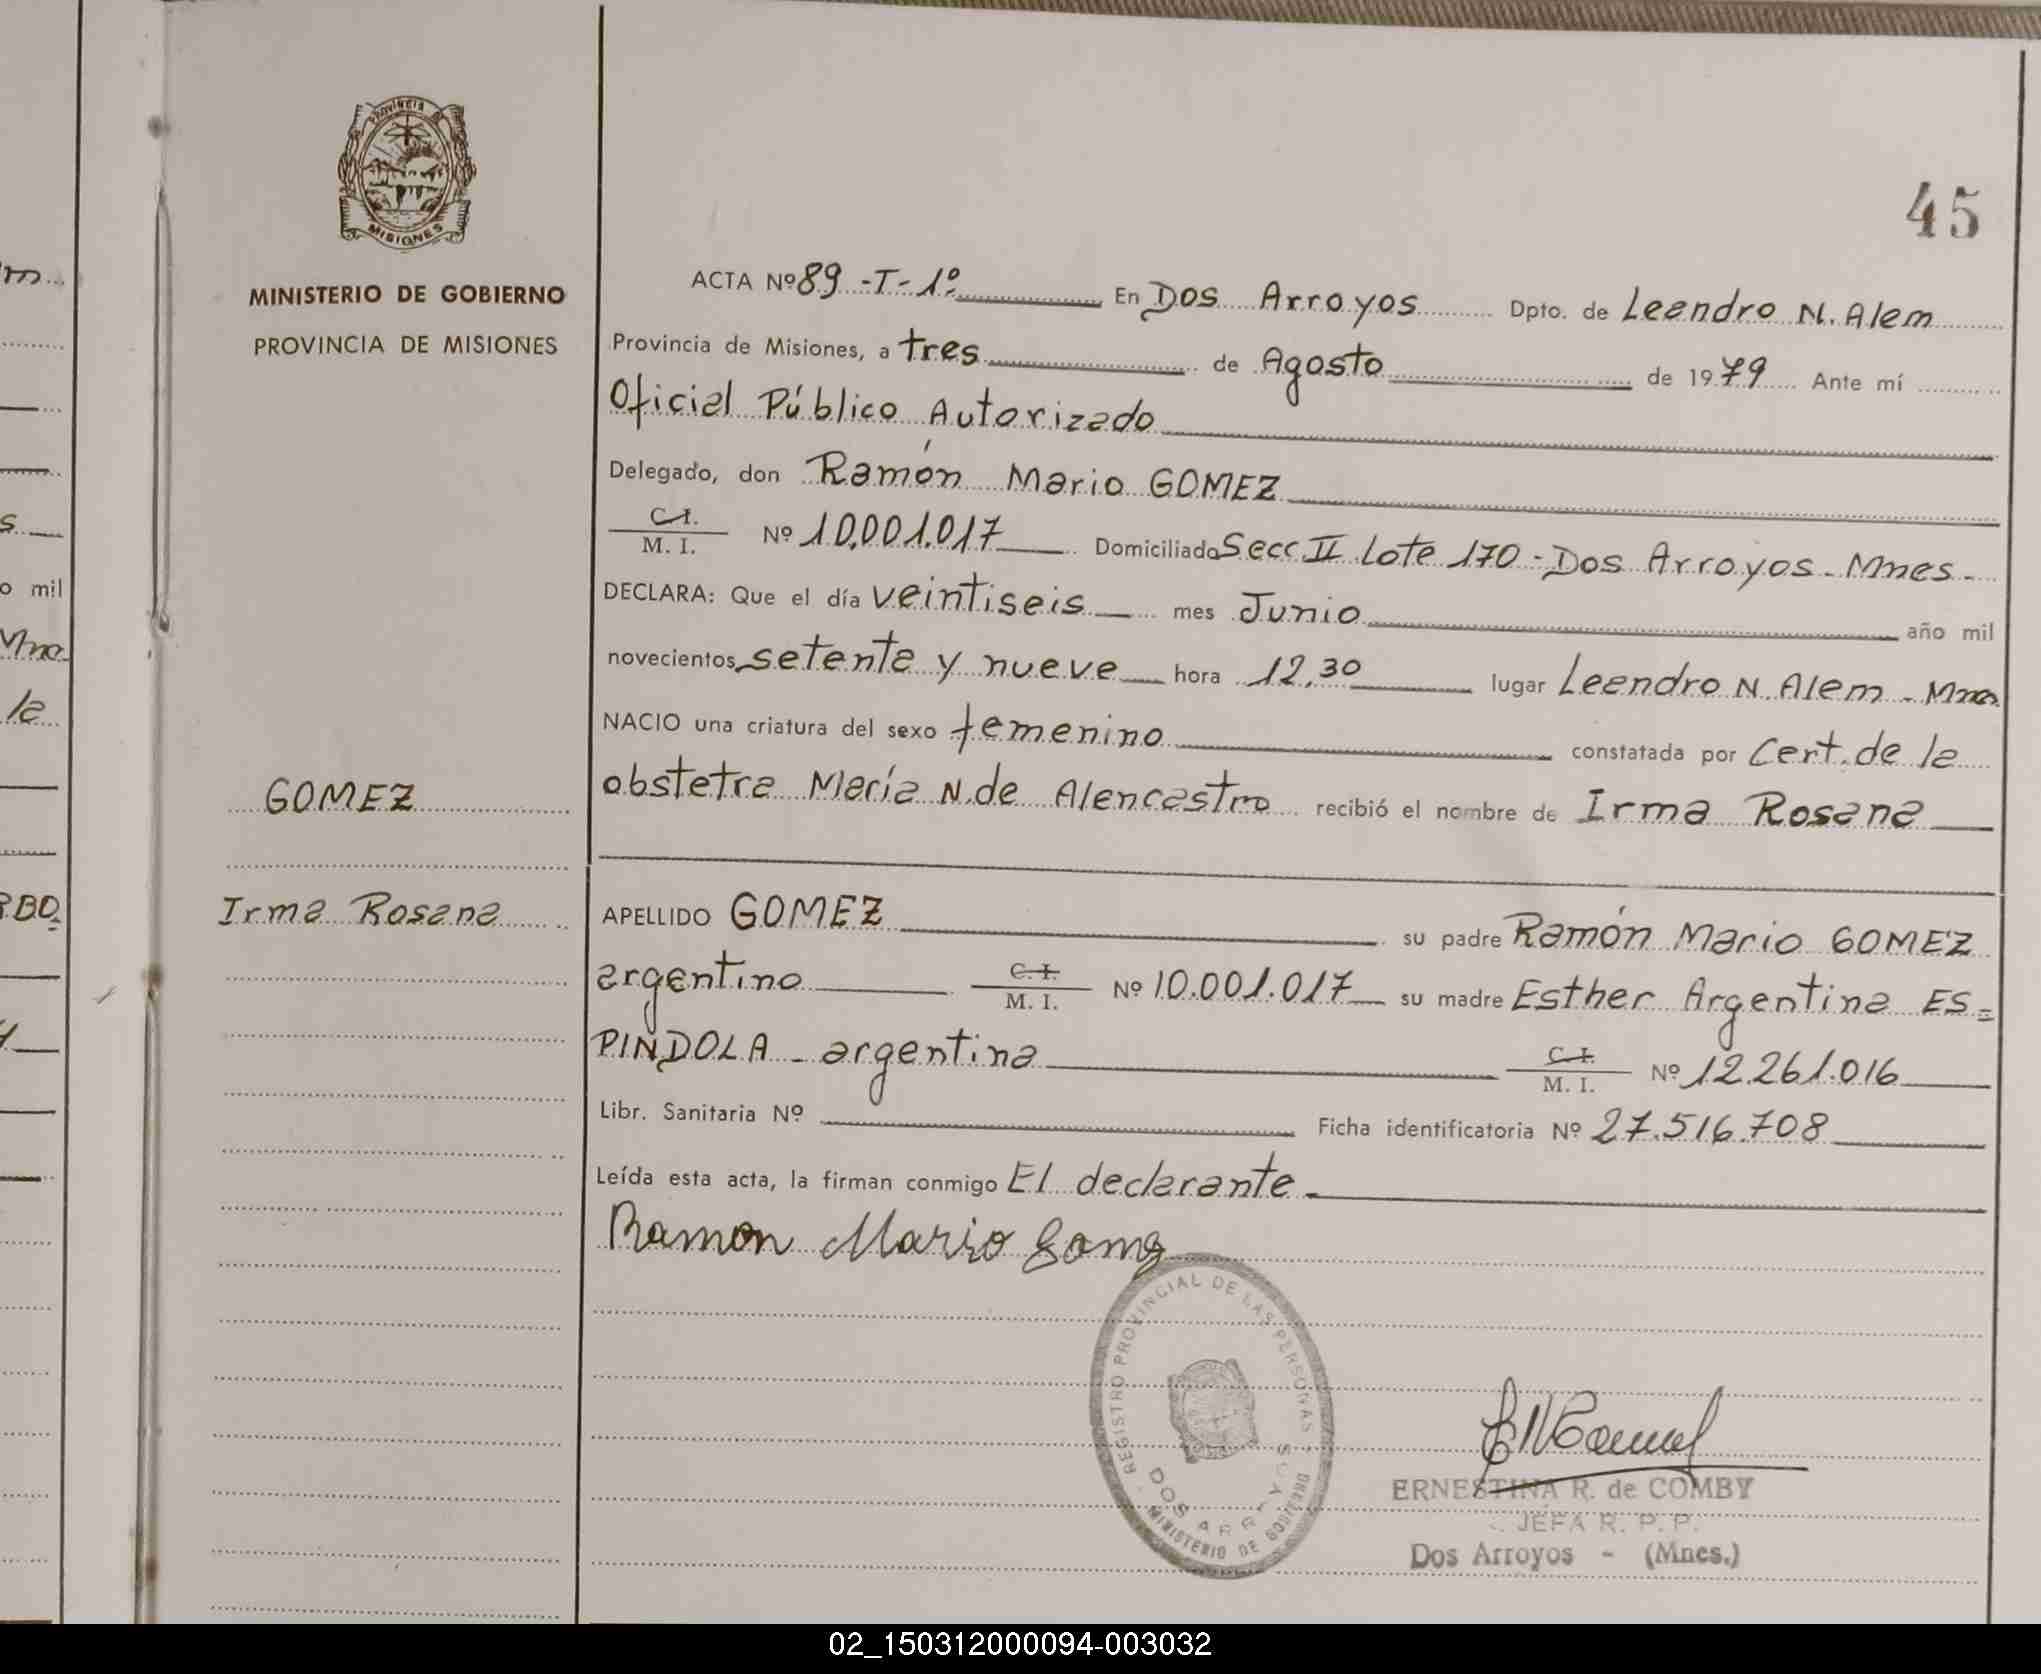 PROVINCIA DE
MISIONES
MINISTERIO DE GOBIERNO
PROVINCIA DE MISIONES
GOMEZ
Irma Rosana
45
ACTA Nº 89 -T- 1º En Dos Arroyos Dpto. de Leandro N. Alem
Provincia de Misiones, a tres de Agosto de 1979 Ante mí
Oficial Público Autorizado
Delegado, don Ramón Mario GOMEZ
C.I. / M. I. Nº 10.001.017 Domiciliado Secc. II Lote 170 - Dos Arroyos - Mnes -
DECLARA: Que el día veintiseis mes Junio año mil
novecientos setenta y nueve hora 12,30 lugar Leandro N. Alem - Mnes
NACIO una criatura del sexo femenino constatada por Cert. de la
obstetra María N. de Alencastro recibió el nombre de Irma Rosana
APELLIDO GOMEZ su padre Ramón Mario GOMEZ
argentino C.I. / M. I. Nº 10.001.017 su madre Esther Argentina ES=
PINDOLA - argentina C.I. / M. I. Nº 12.261.016
Libr. Sanitaria Nº Ficha identificatoria Nº 27.516.708
Leída esta acta, la firman conmigo El declarante.
Ramon Mario Gomez
REGISTRO PROVINCIAL DE LAS PERSONAS
DOS ARROYOS
MINISTERIO DE GOBIERNO
ERNESTINA R. de COMBY
JEFA R. P. P.
Dos Arroyos - (Mnes.)
02_150312000094-003032